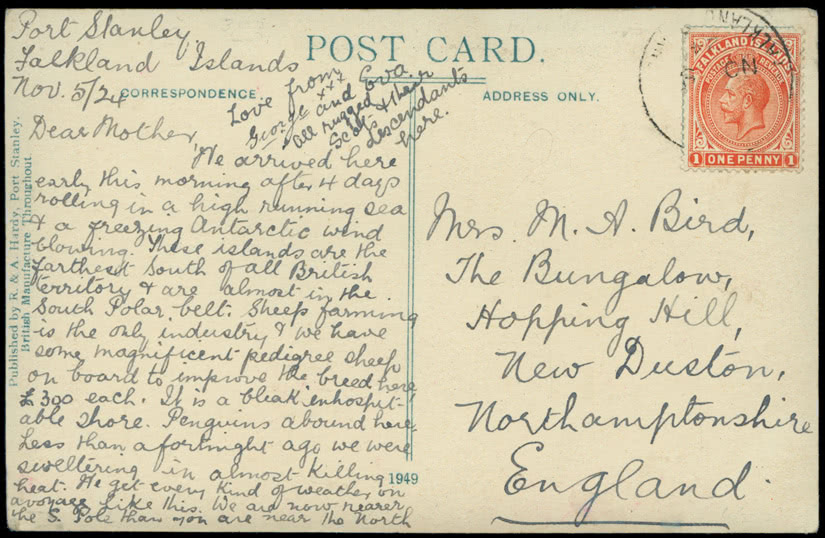 Port Stanley
Falkland Islands
Nov. 5/24
POST CARD.
CORRESPONDENCE.
ADDRESS ONLY.
Love from
George and Eva
xx
all rugged
Scots & their
descendants
here.
Dear Mother,
We arrived here
early this morning after 4 days
rolling in a high running sea
& a freezing Antarctic wind
blowing. These islands are the
farthest South of all British
territory & are almost in the
South Polar belt. Sheep farming
is the only industry & we have
some magnificent pedigree sheep
on board to improve the breed here,
£300 each. It is a bleak inhospit-
able shore. Penguins abound here.
Less than a fortnight ago we were
sweltering in almost killing
heat. We get every kind of weather on
a voyage like this. We are now nearer
the S. Pole than you are near the North
Published by R. & A. Hardy, Port Stanley.
British Manufacture Throughout.
1949
FALKLAND ISLANDS
POSTAGE & REVENUE
1 ONE PENNY 1
FALKLAND
NO
Mrs. M. A. Bird,
The Bungalow,
Hopping Hill,
New Duston,
Northamptonshire
England.